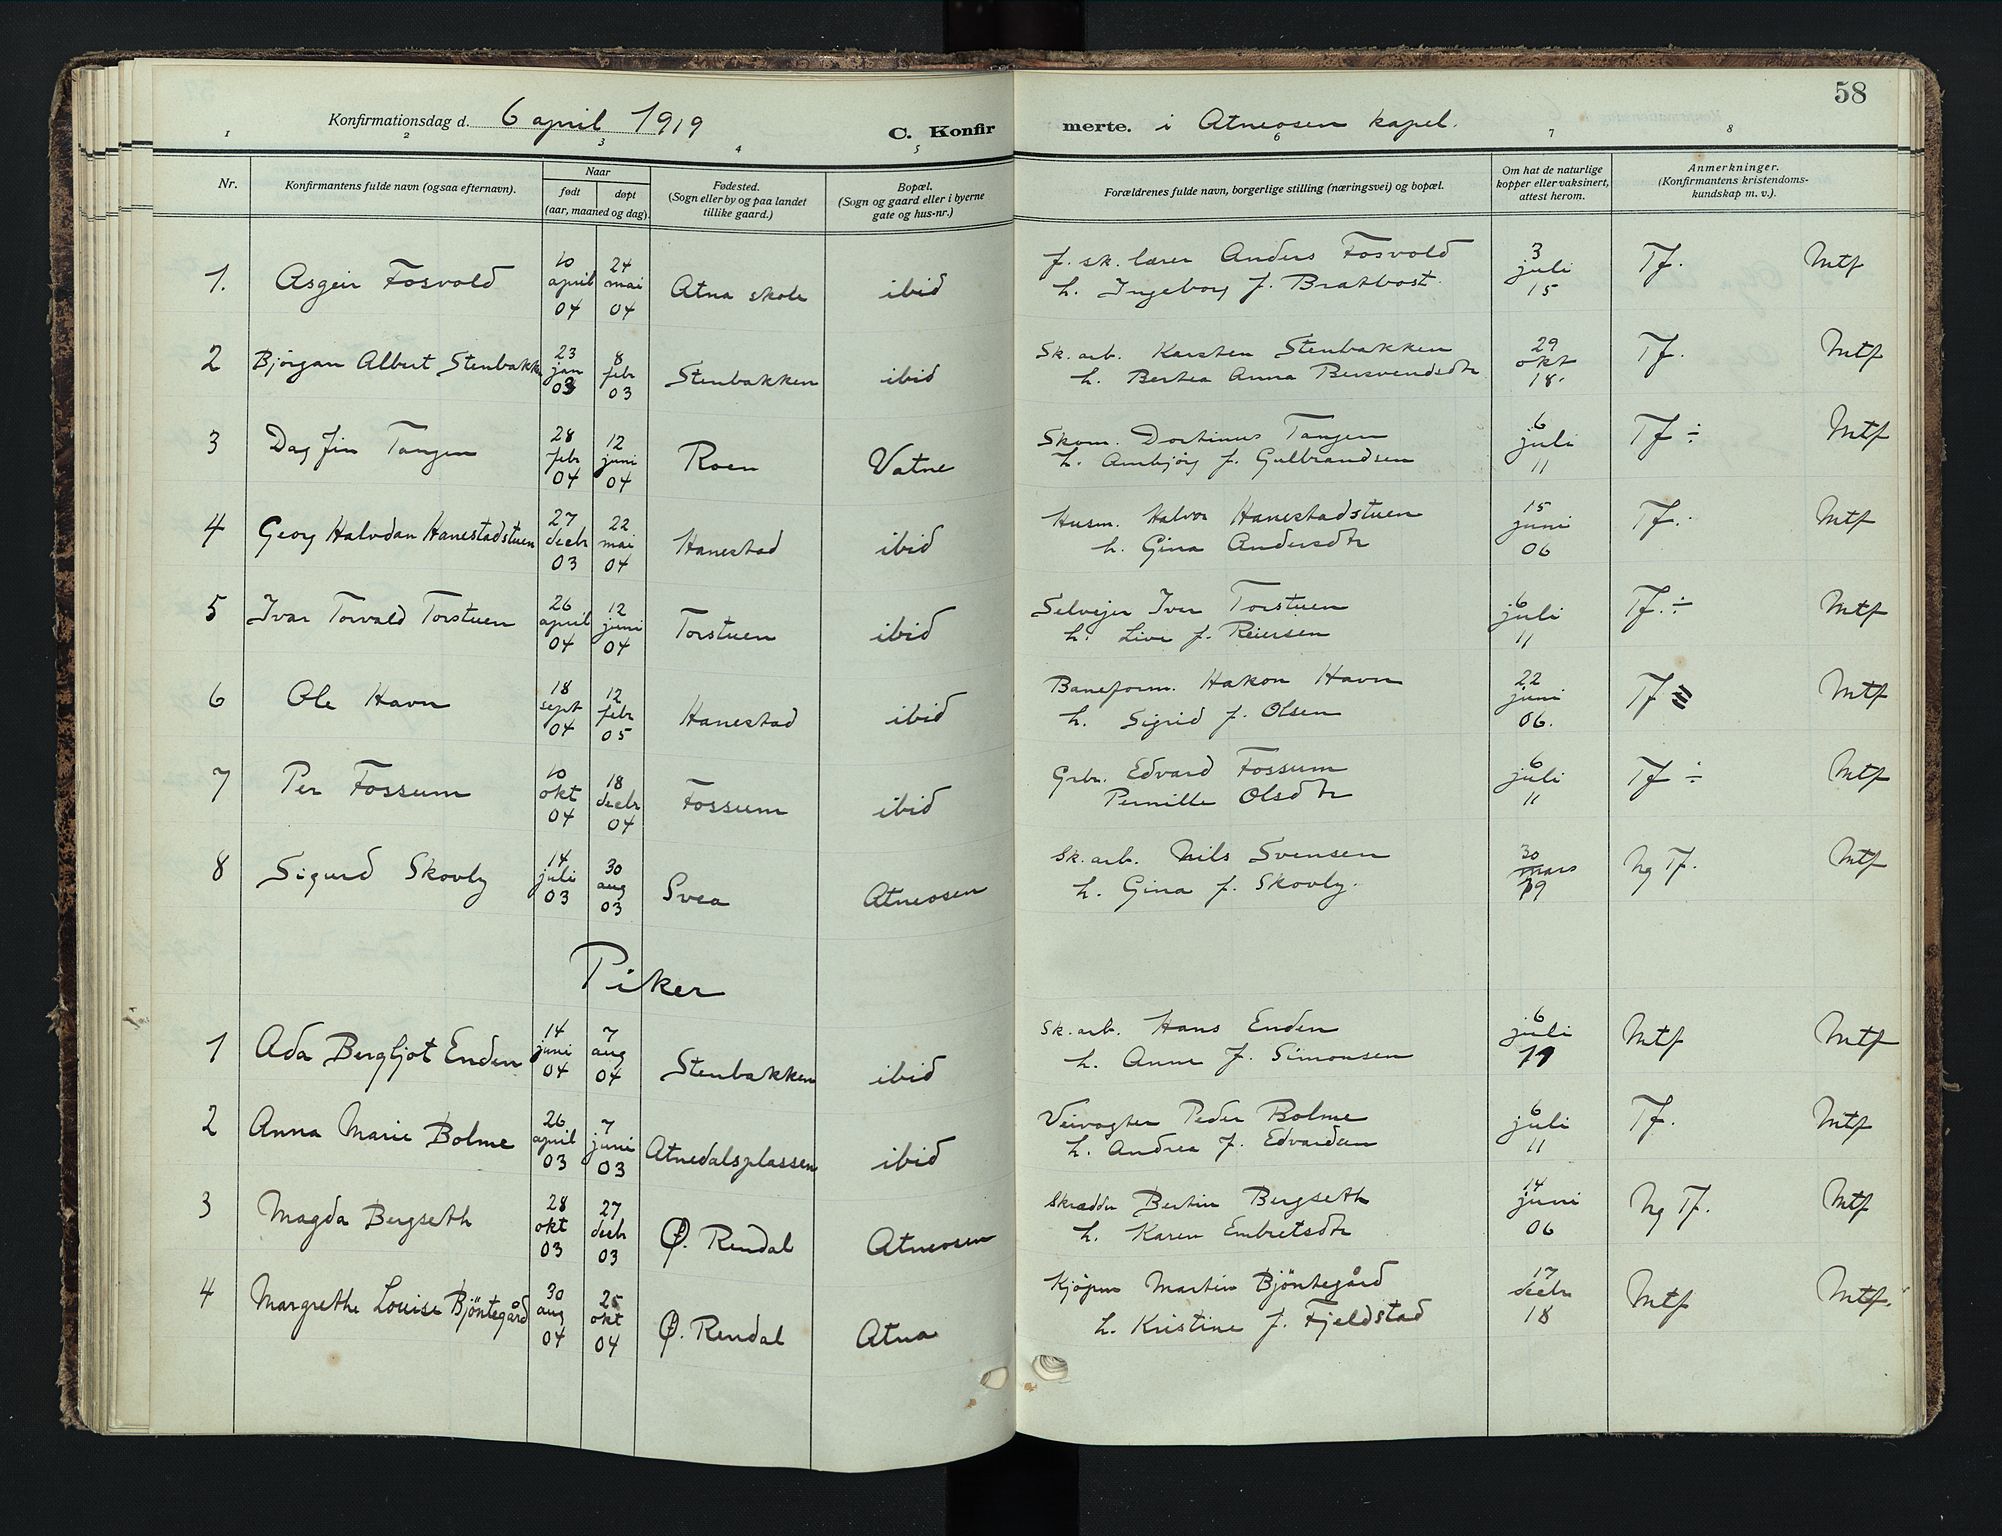 58
Konfirmationsdag d. 6 april 1919 C. Konfirmerte. i Atneosen kapel.
1 2 3 4 5 6 7 8
Nr. Konfirmantens fulde navn (ogsaa efternavn). Naar født døpt (aar, maaned og dag). Fødested. (Sogn eller by og paa landet tillike gaard.) Bopæl. (Sogn og gaard eller i byerne gate og hus-nr.) Forældrenes fulde navn, borgerlige stilling (næringsvei) og bopæl. Om hat de naturlige kopper eller vaksinert, attest herom. Anmerkninger. (Konfirmantens kristendomskundskap m. v.).
1. Asgeir Fosvold 10 april 04 24 mai 04 Atna skole ibid f. sk. lærer Anders Fosvold h. Ingeborg f. Bratbost 3 juli 15 Tf. Mtf
2 Bjørgan Albert Stenbakken 23 jan 03 8 febr 03 Stenbakken ibid Sk. arb. Karsten Stenbakken h. Bertea Anna Bersvendsdtr 29 okt 18. Tf. Mtf
3 Dagfin Tangen 28 febr 04 12 juni 04 Roen Vatne Skom. Dortinus Tangen h. Annbjørg f. Gulbrandsen 6 juli 11 Tf ÷ Mtf
4 Georg Halvdan Hanestadstuen 27 decbr 03 22 mai 04 Hanestad ibid Husm. Halvor Hanestadstuen h. Gina Andersdtr 15 juni 06 Tf. Mtf
5 Ivar Torvald Torstuen 26 april 04 12 juni 04 Torstuen ibid Selvejer Iver Torstuen h. Live f. Reiersen 6 juli 11 Tf. ÷ Mtf
6 Ole Havn 18 sept 04 12 febr 05 Hanestad ibid Baneform. Hakon Havn h. Sigrid f. Olsen 22 juni 06. Tf Mtf
7 Per Fossum 10 okt 04 18 decbr 04 Fossum ibid Grbr. Edvard Fossum Pernille Olsdtr 6 juli 11 Tf ÷ Mtf
8 Sigurd Skovly 14 juli 03 30 aug 03 Svea Atneosen Sk. arb. Nils Svensen h. Gina f. Skovly. 30 mars 19 Ng Tf. Mtf
Piker
1 Ada Bergljot Enden 14 juni 04 7 aug 04 Stenbakken ibid Sk. arb. Hans Enden h. Anne f. Simonsen 6 juli 11 Mtf Mtf
2 Anna Marie Bolme 26 april 03 7 juni 03 Atnedalsplassen ibid Veivogter Peder Bolme h. Andrea f. Edvardsen 6 juli 11 Tf. Mtf
3 Magda Bergseth 28 okt 03 27 decbr 03 Ø. Rendal Atneosen Skrædder Bertin Bergseth h. Karen Embretsdtr 14 juni 06 Ng Tf. Mtf
4 Margrethe Louise Bjöntegård 30 aug 04 25 okt 04 Ø. Rendal Atna Kjøpm Martin Bjöntegård h. Kristine f. Fjeldstad 17 decbr 18 Mtf Mtf.